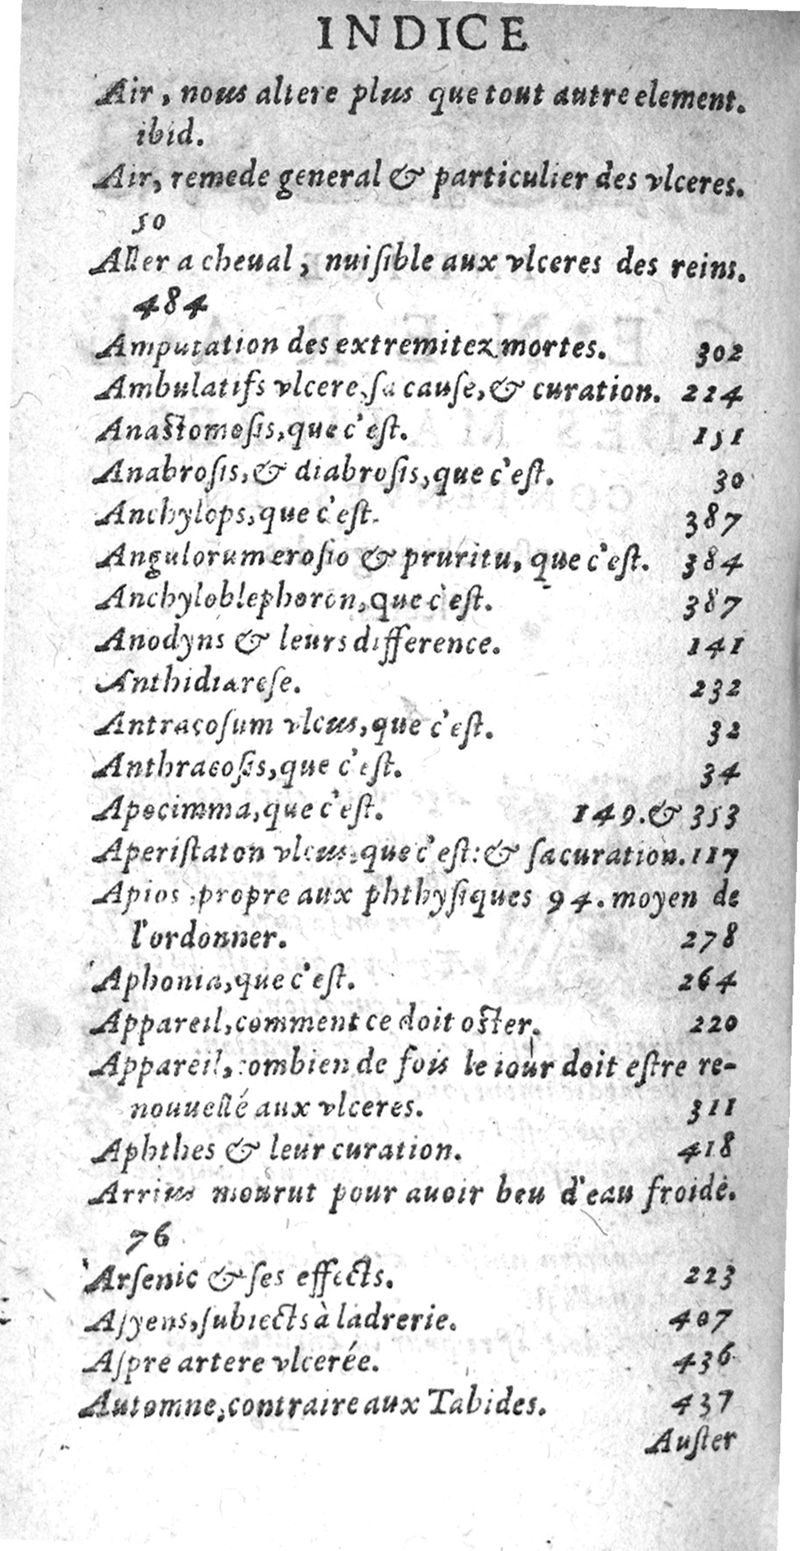 INDICE
Air, nous altere plus que tout autre element.
ibid.
Air, remede general & particulier des vlceres.
50
Aller a cheual, nuiſible aux vlceres des reins.
484
Amputation des extremitez mortes. 302
Ambulatifs vlcere, ſa cauſe, & curation. 224
Anaſtomoſis, que c'eſt. 151
Anabroſis, & diabroſis, que c'eſt. 30
Anchylops, que c'eſt. 387
Angulorum eroſio & pruritu, que c'eſt. 384
Anchyloblephoron, que c'eſt. 387
Anodyns & leurs difference. 141
Anthidiareſe. 232
Antracoſum vlcus, que c'eſt. 32
Anthracoſis, que c'eſt. 34
Apocimma, que c'eſt. 149. & 353
Aperiſtaton vlcus, que c'eſt: & ſa curation. 117
Apios, propre aux phthyſiques 94. moyen de
l'ordonner. 278
Aphonia, que c'eſt. 264
Appareil, comment ce doit oſter. 220
Appareil, combien de fois le iour doit eſtre re-
nouuellé aux vlceres. 311
Aphthes & leur curation. 418
Arrius mourut pour auoir beu d'eau froide.
76
Arſenic & ſes effects. 223
Aſyens, ſubiects à ladrerie. 407
Aſpre artere vlcerée. 436
Automne, contraire aux Tabides. 437
Auſter